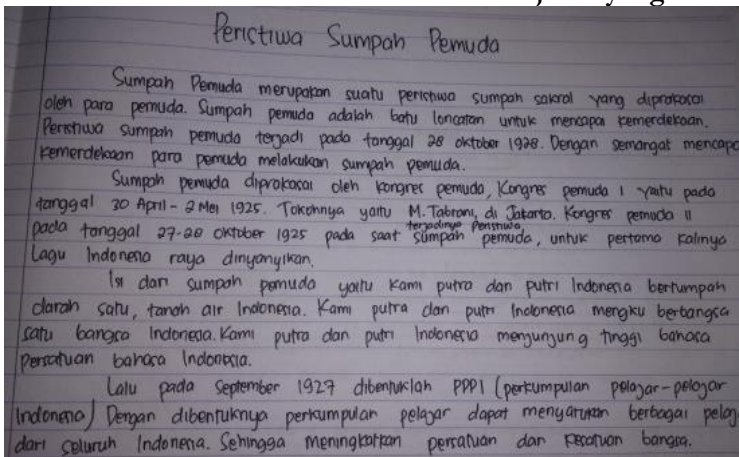 Peristiwa Sumpah Pemuda
Sumpah Pemuda merupakan suatu peristiwa sumpah sakral yang diprakasai
oleh para pemuda. Sumpah pemuda adalah batu loncatan untuk mencapai kemerdekaan.
Peristiwa sumpah pemuda terjadi pada tanggal 28 oktober 1928. Dengan semangat mencapa
kemerdekaan para pemuda melakukan sumpah pemuda.
Sumpah pemuda diprakasai oleh kongres pemuda, Kongres pemuda I yaitu pada
tanggal 30 April - 2 Mei 1925. Tokohnya yaitu M. Tabrani, di Jakarta. Kongres pemuda II
pada tanggal 27-28 Oktober 1925 pada saat terjadinya Peristiwa sumpah pemuda, untuk pertama kalinya
Lagu Indonesia raya dinyanyikan.
Isi dari sumpah pemuda yaitu kami putra dan putri Indonesia bertumpah
darah satu, tanah air Indonesia. Kami putra dan putri Indonesia mengku berbangsa
satu bangsa Indonesia. Kami putra dan putri Indonesia menjunjung tinggi bahasa
persatuan bahasa Indonesia.
Lalu pada September 1927 dibentuklah PPPI (perkumpulan pelajar-pelajar
Indonesia) Dengan dibentuknya perkumpulan pelajar dapat menyatukan berbagai pelaj
dari seluruh Indonesia. Sehingga meningkatkan persatuan dan kesatuan bangsa.